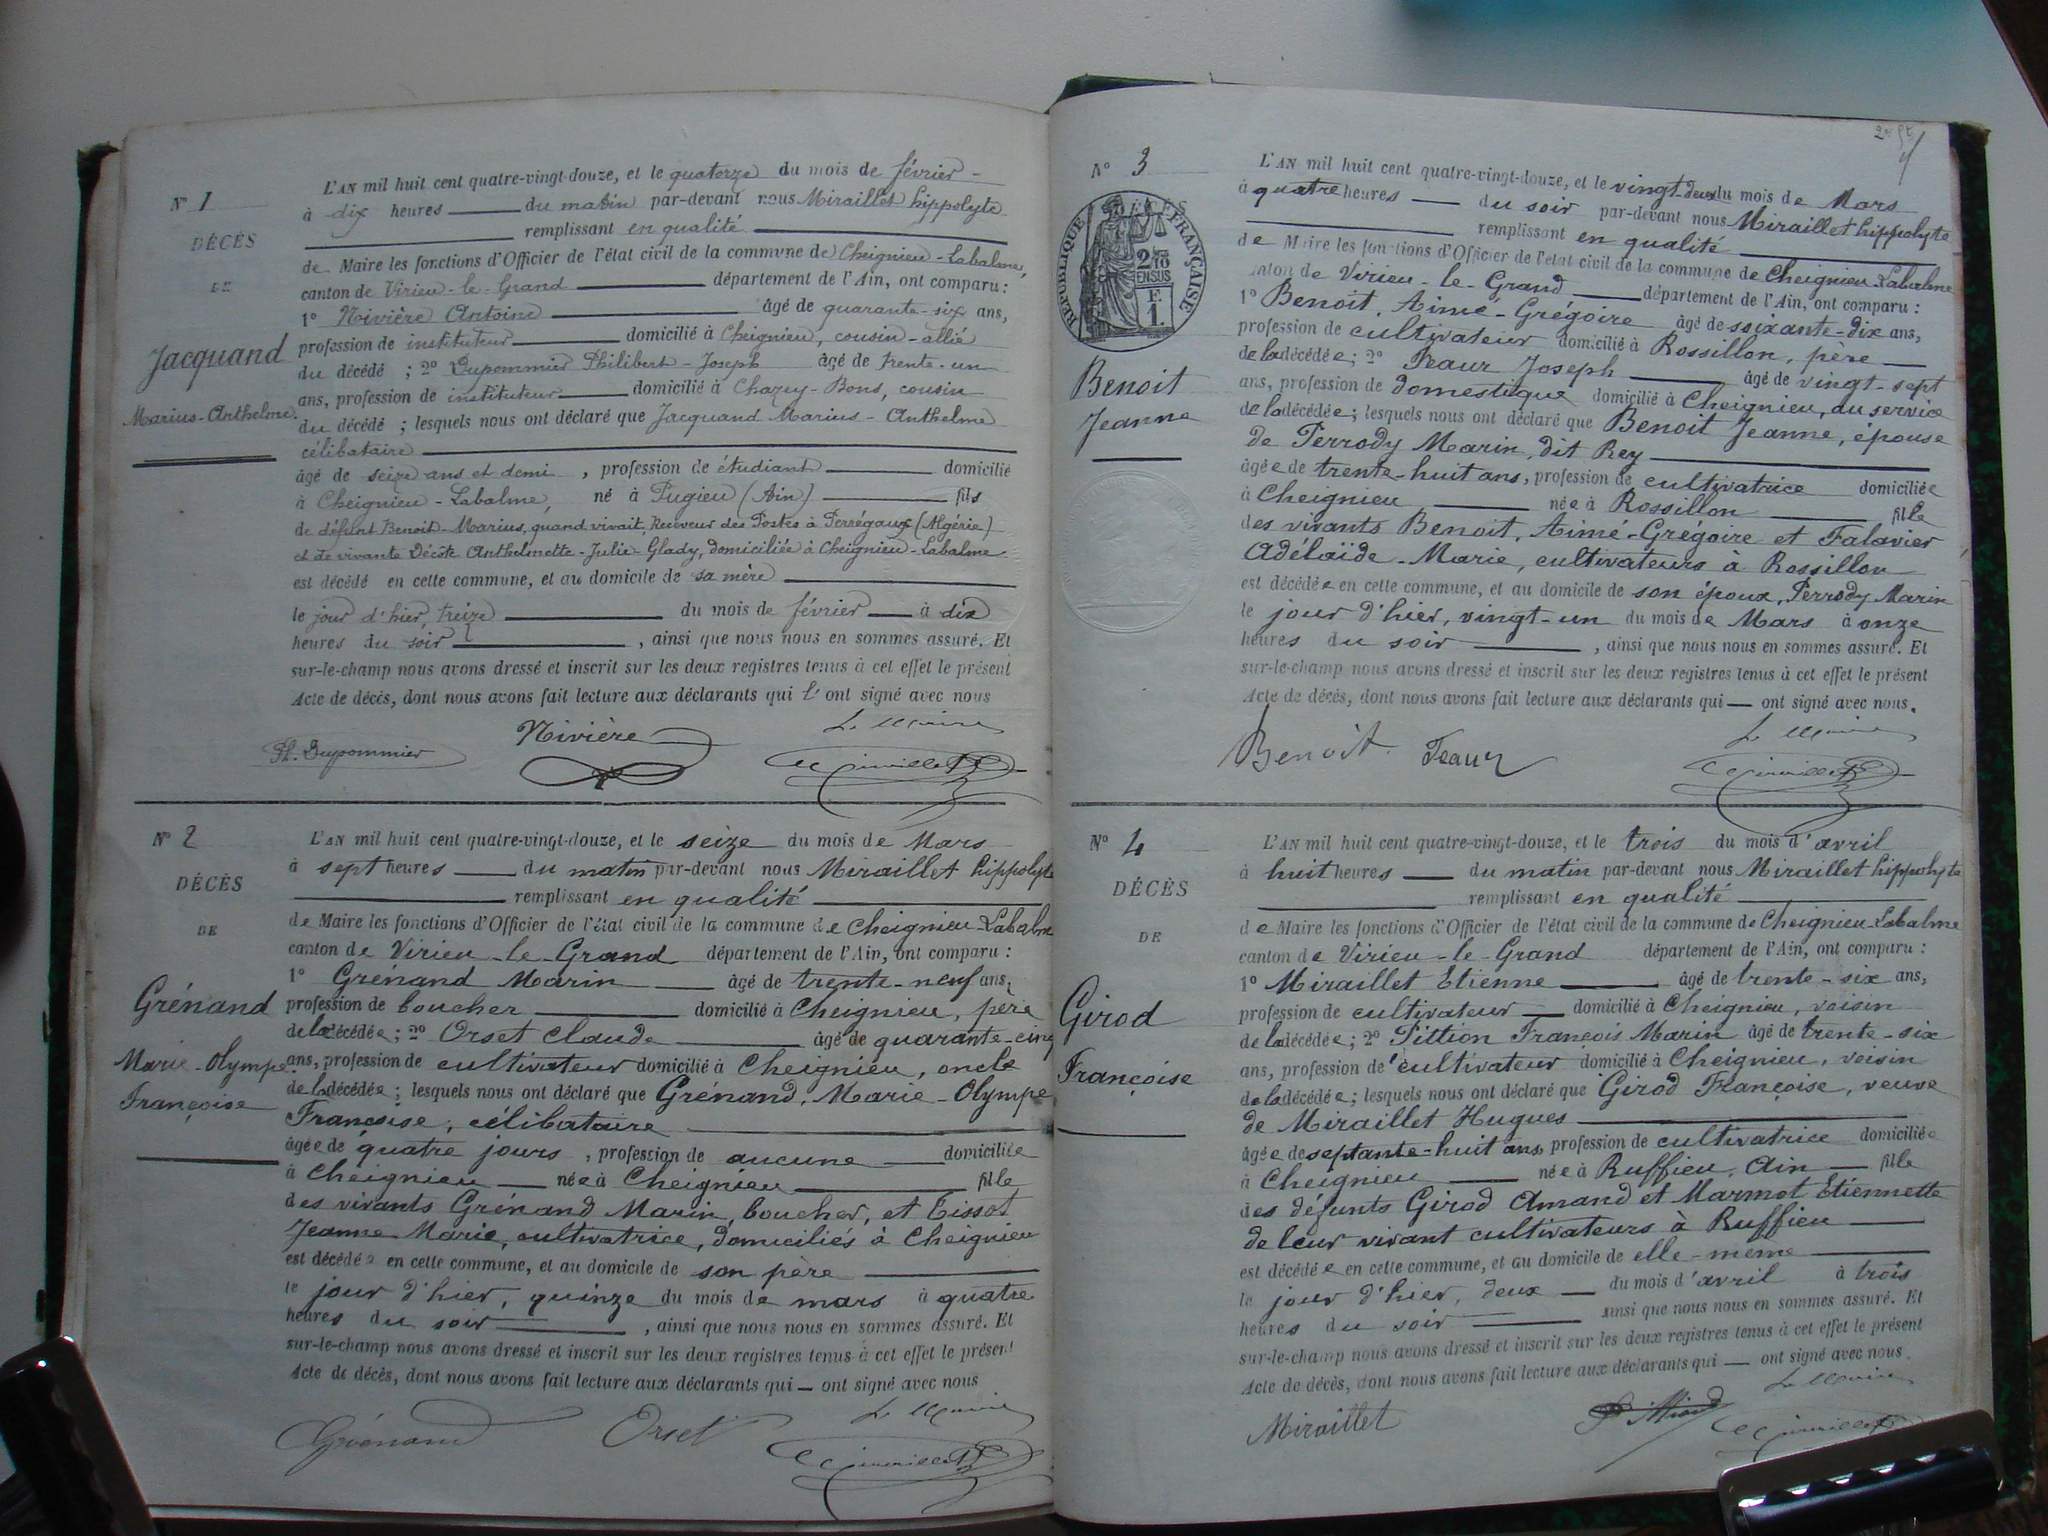 N° 1
DÉCÈS
DE
Jacquand
Marius-Anthelme.
L'AN mil huit cent quatre-vingt-douze, et le quatorze du mois de février
à dix heures du matin par-devant nous Miraillet hippolyte
remplissant en qualité
de Maire les fonctions d'Officier de l'état civil de la commune de Cheignieu-Labalme,
canton de Virieu-le-Grand département de l'Ain, ont comparu :
1° Nivière Antoine âgé de quarante-six ans,
profession de instituteur domicilié à Cheignieu, cousin-allié
du décédé ; 2° Dupommier Philibert-Joseph âgé de trente-un
ans, profession de instituteur domicilié à Chazey-Bons, cousin
du décédé ; lesquels nous ont déclaré que Jacquand Marius-Anthelme
célibataire
âgé de seize ans et demi , profession de étudiant domicilié
à Cheignieu-Labalme, né à Pugieu (Ain) fils
de défunt Benoit-Marius, quand vivait, Receveur des Postes à Perrégaux (Algérie)
et de vivante Décote Anthelmette-Julie-Glady, domiciliée à Cheignieu-Labalme
est décédé en cette commune, et au domicile de sa mère
le jour d'hier, treize du mois de février à dix
heures du soir , ainsi que nous nous en sommes assuré. Et
sur-le-champ nous avons dressé et inscrit sur les deux registres tenus à cet effet le présent
Acte de décès, dont nous avons fait lecture aux déclarants qui l'ont signé avec nous
Ph. Dupommier Nivière Le Maire
Miraillet
N° 2
DÉCÈS
DE
Grénand
Marie-Olympe-
Françoise
L'AN mil huit cent quatre-vingt-douze, et le seize du mois de Mars
à sept heures du matin par-devant nous Miraillet hippolyte
remplissant en qualité
de Maire les fonctions d'Officier de l'état civil de la commune de Cheignieu-Labalme
canton de Virieu-le-Grand département de l'Ain, ont comparu :
1° Grénand Marin âgé de trente-neuf ans,
profession de boucher domicilié à Cheignieu, père
de la décédée ; 2° Orset Claude âgé de quarante-cinq
ans, profession de cultivateur domicilié à Cheignieu, oncle
de la décédée ; lesquels nous ont déclaré que Grénand, Marie-Olympe
Françoise, célibataire
âgée de quatre jours , profession de aucune domiciliée
à Cheignieu née à Cheignieu fille
des vivants Grénand Marin, boucher, et Tissot
Jeanne Marie, cultivatrice, domiciliés à Cheignieu
est décédée en cette commune, et au domicile de son père
le jour d'hier, quinze du mois de mars à quatre
heures du soir , ainsi que nous nous en sommes assuré. Et
sur-le-champ nous avons dressé et inscrit sur les deux registres tenus à cet effet le présent
Acte de décès, dont nous avons fait lecture aux déclarants qui — ont signé avec nous
Grénand Orset Le Maire
Miraillet
N° 3
DÉCÈS
RÉPUBLIQUE FRANÇAISE
2/10
EN SUS
F.
1.
Benoit
Jeanne
L'AN mil huit cent quatre-vingt-douze, et le vingt-deux du mois de Mars
à quatre heures du soir par-devant nous Miraillet hippolyte
remplissant en qualité
de Maire les fonctions d'Officier de l'état civil de la commune de Cheignieu-Labalme
canton de Virieu-le-Grand département de l'Ain, ont comparu :
1° Benoit, Aimé-Grégoire âgé de soixante-dix ans,
profession de cultivateur domicilié à Rossillon, père
de la décédée ; 2° Feaur Joseph âgé de vingt-sept
ans, profession de domestique domicilié à Cheignieu, au service
de la décédée ; lesquels nous ont déclaré que Benoit Jeanne, épouse
de Perrody Marin, dit Rey
âgée de trente-huit ans, profession de cultivatrice domiciliée
à Cheignieu née à Rossillon fille
des vivants Benoit, Aimé-Grégoire et Falavier
Adélaïde-Marie, cultivateurs à Rossillon
est décédée en cette commune, et au domicile de son époux, Perrody Marin
le jour d'hier, vingt-un du mois de Mars à onze
heures du soir , ainsi que nous nous en sommes assuré. Et
sur-le-champ nous avons dressé et inscrit sur les deux registres tenus à cet effet le présent
Acte de décès, dont nous avons fait lecture aux déclarants qui — ont signé avec nous.
Benoit Feaur Le Maire
Miraillet
N° 4
DÉCÈS
DE
Girod
Françoise
L'AN mil huit cent quatre-vingt-douze, et le trois du mois d'avril
à huit heures du matin par-devant nous Miraillet hippolyte
remplissant en qualité
de Maire les fonctions d'Officier de l'état civil de la commune de Cheignieu-Labalme
canton de Virieu-le-Grand département de l'Ain, ont comparu :
1° Miraillet Etienne âgé de trente-six ans,
profession de cultivateur domicilié à Cheignieu, voisin
de la décédée ; 2° Pittion François Marin âgé de trente-six
ans, profession de cultivateur domicilié à Cheignieu, voisin
de la décédée ; lesquels nous ont déclaré que Girod Françoise, veuve
de Miraillet Hugues
âgée de septante-huit ans, profession de cultivatrice domiciliée
à Cheignieu née à Ruffieu, Ain fille
des défunts Girod Amand et Marmot Etiennette
de leur vivant cultivateurs à Ruffieu
est décédée en cette commune, et au domicile de elle-même
le jour d'hier, deux du mois d'avril à trois
heures du soir ainsi que nous nous en sommes assuré. Et
sur-le-champ nous avons dressé et inscrit sur les deux registres tenus à cet effet le présent
Acte de décès, dont nous avons fait lecture aux déclarants qui — ont signé avec nous.
Miraillet Pittion Le Maire
Miraillet